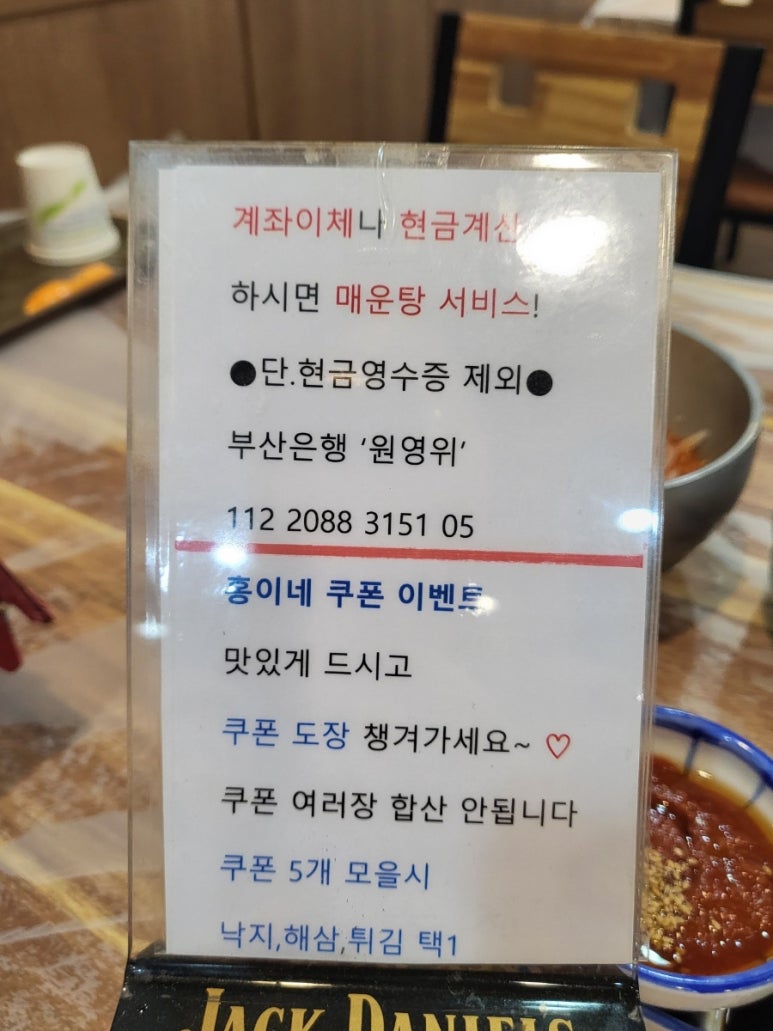 계좌이체나 현금계산
하시면 매운탕 서비스!
●단.현금영수증 제외●
부산은행 ‘원영위’
112 2088 3151 05
홍이네 쿠폰 이벤트
맛있게 드시고
쿠폰 도장 챙겨가세요~ ♡
쿠폰 여러장 합산 안됩니다
쿠폰 5개 모을시
낙지,해삼,튀김 택1
JACK DANIEL'S